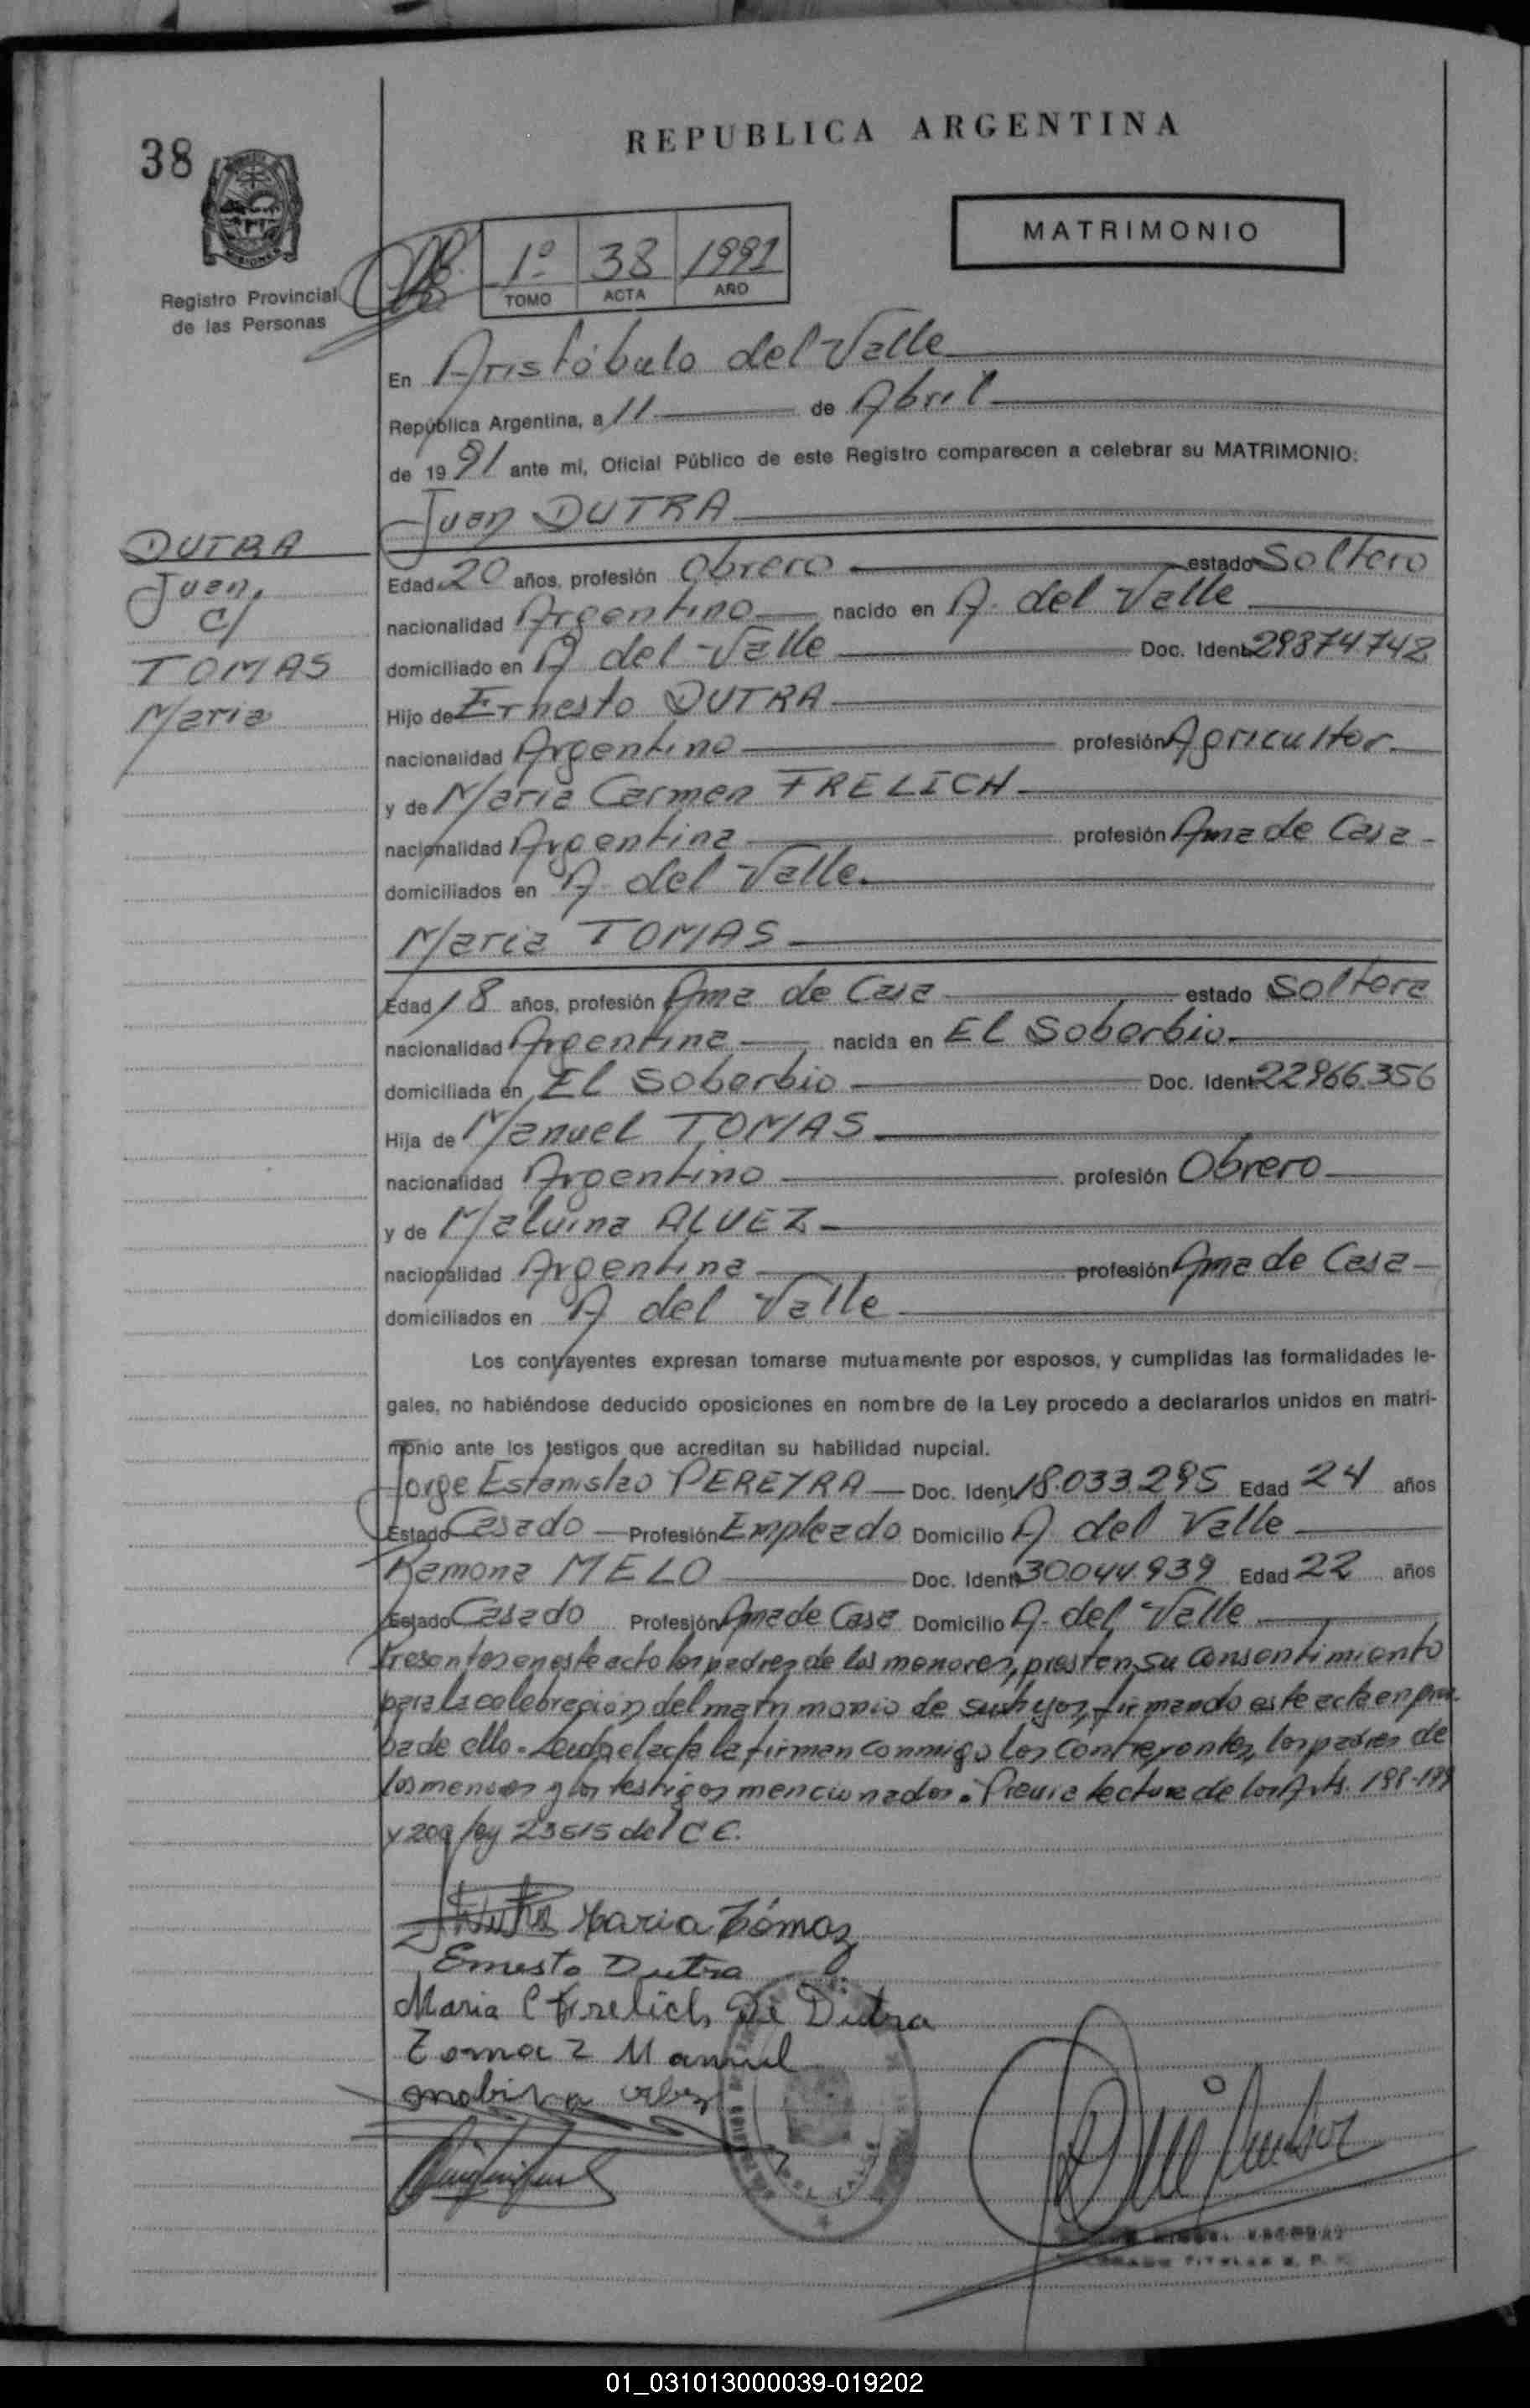 REPUBLICA ARGENTINA
38
MISIONES
MATRIMONIO
1º 38 1991
TOMO ACTA AÑO
Registro Provincial
de las Personas
En Aristóbulo del Valle
República Argentina, a 11 de Abril
de 19 91 ante mi, Oficial Público de este Registro comparecen a celebrar su MATRIMONIO:
Juan DUTRA
DUTRA
Juan
c/
TOMAS
Maria
Edad 20 años, profesión Obrero estado Soltero
nacionalidad Argentino nacido en A. del Valle
domiciliado en A del Valle Doc. Ident 29874748
Hijo de Ernesto DUTRA
nacionalidad Argentino profesión Agricultor
y de Maria Carmen FRELICH
nacionalidad Argentina profesión Ama de Casa
domiciliados en A. del Valle
Maria TOMAS
Edad 18 años, profesión Ama de Casa estado Soltera
nacionalidad Argentina nacida en El Soberbio
domiciliada en El Soberbio Doc. Ident 22966.356
Hija de Manuel TOMAS
nacionalidad Argentino profesión Obrero
y de Malvina ALVEZ
nacionalidad Argentina profesión Ama de Casa
domiciliados en A del Valle
Los contrayentes expresan tomarse mutuamente por esposos, y cumplidas las formalidades le-
gales, no habiéndose deducido oposiciones en nombre de la Ley procedo a declararlos unidos en matri-
monio ante los testigos que acreditan su habilidad nupcial.
Jorge Estanislao PEREYRA Doc. Ident 18.033.295 Edad 24 años
Estado Casado Profesión Empleado Domicilio A. del Valle
Ramona MELO Doc. Ident 30044.939 Edad 22 años
Estado Casado Profesión Ama de Casa Domicilio A. del Valle
Presentes en este acto los padres de los menores, prestan su consentimiento
para la celebración del matrimonio de sus hijos, firmando este acta en prue-
ba de ello. Leida el acta la firman conmigo los contrayentes, los padres de
los menores y los testigos mencionados. Previa lectura de los Arts. 198-199
y 200 ley 23515 del C C.
Maria Tómaz
Ernesto Dutra
Maria C Frelich De Dutra
Tomaz Manuel
01_031013000039-019202